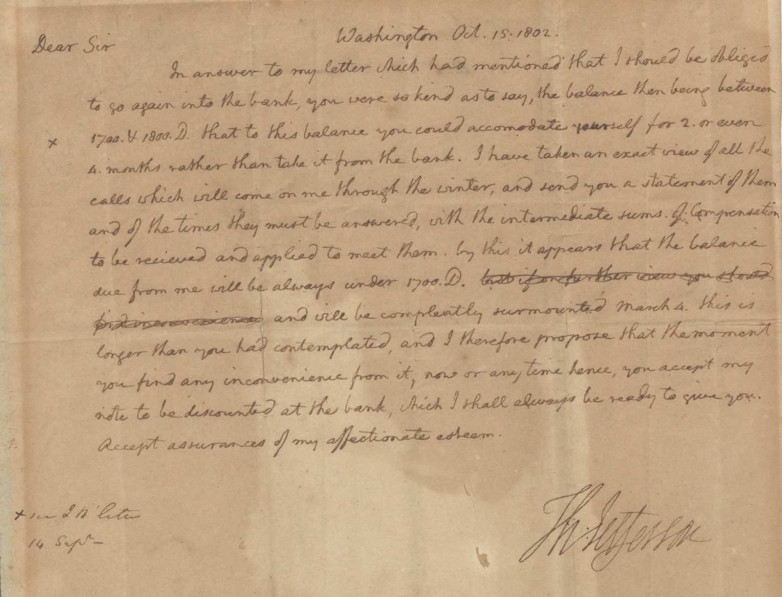 Washington Oct. 15. 1802.
Dear Sir
In answer to my letter which had mentioned that I should be obliged
to go again into the bank, you were so kind as to say, the balance then being between
x 1700. & 1800. D. that to this balance you could accomodate yourself for 2. or even
4. months rather than take it from the bank. I have taken an exact view of all the
calls which will come on me through the winter, and send you a statement of them
and of the times they must be answered, with the intermediate sums of Compensation
to be recieved and applied to meet them. by this it appears that the balance
due from me will be always under 1700. D. but if on further view you should
find inconvenience and will be compleatly surmounted March 4. this is
longer than you had contemplated, and I therefore propose that the moment
you find any inconvenience from it, now or any time hence, you accept my
note to be discounted at the bank, which I shall always be ready to give you.
Accept assurances of my affectionate esteem.
Th: Jefferson
x see J B'
14 Sepr.